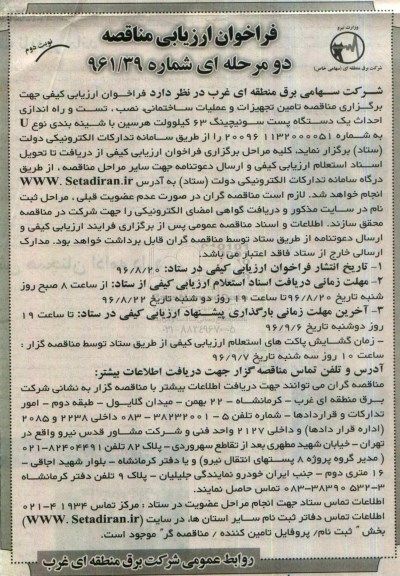 وزارت نیرو
شرکت برق منطقه ای غرب (سهامی خاص)
نوبت دوم
فراخوان ارزیابی مناقصه
دو مرحله ای شماره ۹۶۱/۳۹
شرکت سهامی برق منطقه ای غرب در نظر دارد فراخوان ارزیابی کیفی جهت
برگزاری مناقصه تامین تجهیزات و عملیات ساختمانی، نصب، تست و راه اندازی
احداث یک دستگاه پست سوئیچینگ ۶۳ کیلوولت هرسین با شینه بندی نوع U
به شماره ۲۰۰۹۶ ۱۱۳۲۰۰۰۰۵۱ را از طریق سامانه تدارکات الکترونیکی دولت
(ستاد) برگزار نماید. کلیه مراحل برگزاری فراخوان ارزیابی کیفی از دریافت تا تحویل
اسناد استعلام ارزیابی کیفی و ارسال دعوتنامه جهت سایر مراحل مناقصه، از طریق
درگاه سامانه تدارکات الکترونیکی دولت (ستاد) به آدرس WWW. Setadiran.ir
انجام خواهد شد. لازم است مناقصه گران در صورت عدم عضویت قبلی، مراحل ثبت
نام در سایت مذکور و دریافت گواهی امضای الکترونیکی را جهت شرکت در مناقصه
محقق سازند. اطلاعات و اسناد مناقصه عمومی پس از برگزاری فرایند ارزیابی کیفی و
ارسال دعوتنامه از طریق ستاد توسط مناقصه گران قابل برداشت خواهد بود. مدارک
ارسالی خارج از ستاد فاقد اعتبار می باشد.
۱- تاریخ انتشار فراخوان ارزیابی کیفی در ستاد: ۹۶/۸/۲۰
۲- مهلت زمانی دریافت اسناد استعلام ارزیابی کیفی از ستاد: از ساعت ۸ صبح روز
شنبه تاریخ ۹۶/۸/۲۰ تا ساعت ۱۹ روز دو شنبه تاریخ ۹۶/۸/۲۲
۳- آخرین مهلت زمانی بارگذاری پیشنهاد ارزیابی کیفی در ستاد: تا ساعت ۱۹
روز دوشنبه تاریخ ۹۶/۹/۶
- زمان گشایش پاکت های استعلام ارزیابی کیفی از طریق ستاد توسط مناقصه گزار :
ساعت ۱۰ روز سه شنبه تاریخ ۹۶/۹/۷
آدرس و تلفن تماس مناقصه گزار جهت دریافت اطلاعات بیشتر:
مناقصه گران می توانند جهت دریافت اطلاعات بیشتر با مناقصه گزار به نشانی شرکت
برق منطقه ای غرب - کرمانشاه - ۲۲ بهمن - میدان گلایول - طبقه دوم - امور
تدارکات و قراردادها - شماره تلفن ۵ - ۳۸۲۳۲۰۰۱ - ۰۸۳ داخلی ۲۲۳۸ و ۲۰۸۵
(اداره قرار دادها) و داخلی ۲۱۲۷ واحد فنی و شرکت مشاور قدس نیرو واقع در
تهران - خیابان شهید مطهری بعد از تقاطع سهروردی - پلاک ۸۲ تلفن ۸۲۴۰۴۴۹۱-۰۲۱
( مدیر گروه پروژه ۸ پستهای انتقال نیرو) و یا دفتر کرمانشاه - بلوار شهید اجاقی -
۱۶ متری دوم - جنب ایران خودرو نمایندگی جلیلیان - پلاک ۹ تلفن دفتر کرمانشاه
۳-۵۳۲ ۳۸۳۹۰-۰۸۳ تماس حاصل نمایند.
اطلاعات تماس ستاد جهت انجام مراحل عضویت در ستاد : مرکز تماس ۱۹۳۴ ۴-۰۲۱
اطلاعات تماس دفاتر ثبت نام سایر استان ها، در سایت (WWW. Setadiran.ir)
بخش " ثبت نام/ پروفایل تامین کننده / مناقصه گر" موجود است.
روابط عمومی شرکت برق منطقه ای غرب